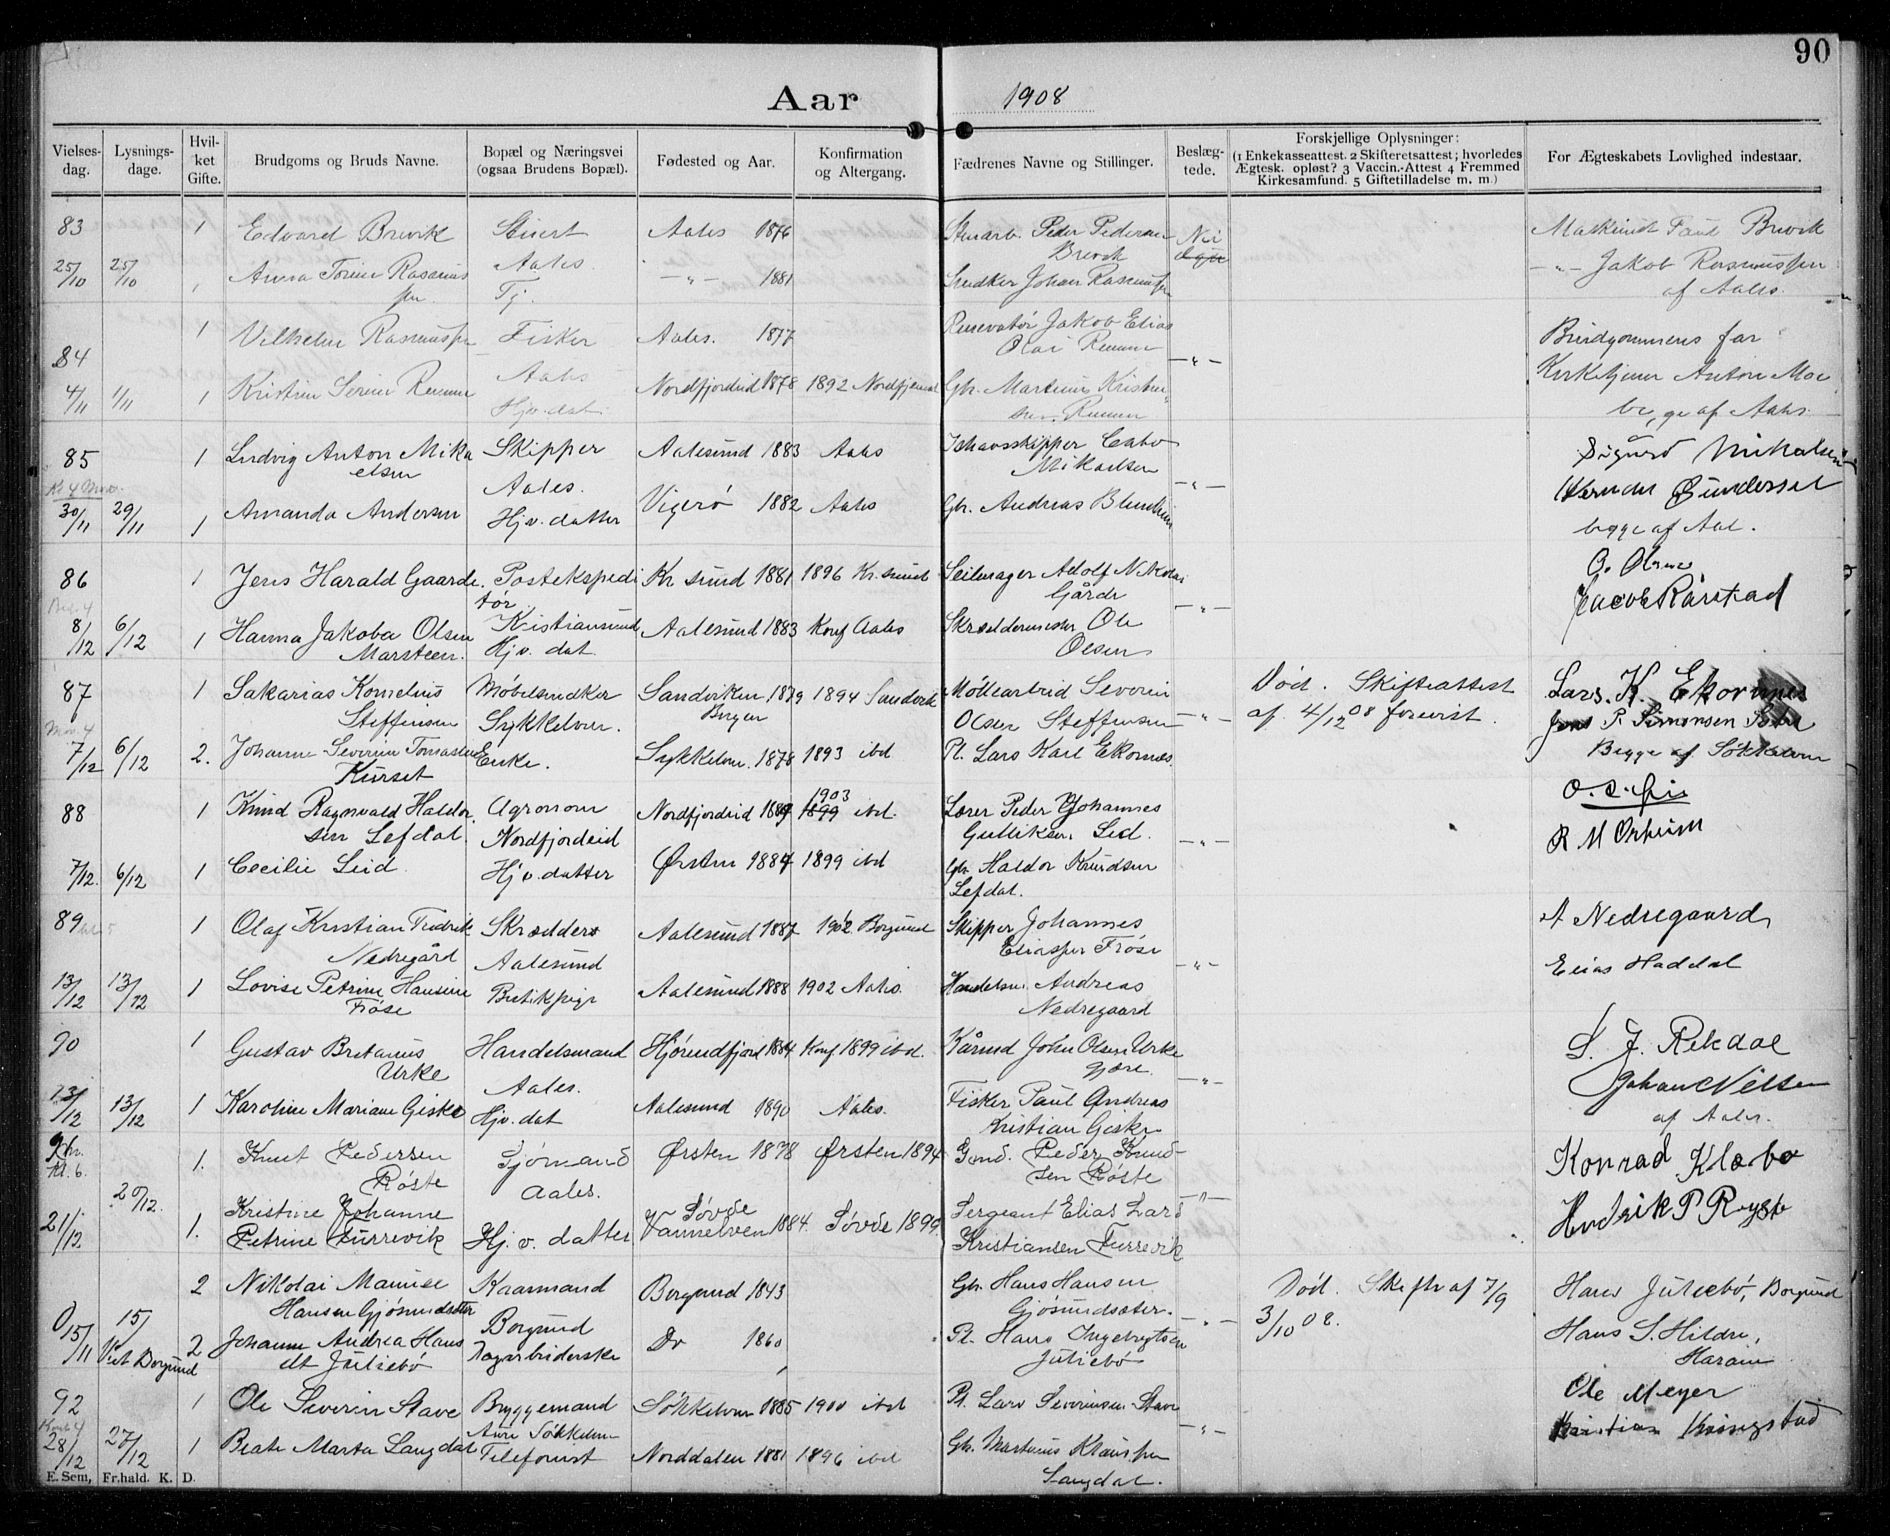 90
Aar 1908
Vielses-dag. Lysnings-dage. Hvil-ket Gifte. Brudgoms og Bruds Navne. Bopæl og Næringsvei (ogsaa Brudens Bopæl). Fødested og Aar. Konfirmation og Altergang. Fædrenes Navne og Stillinger. Beslæg-tede. Forskjellige Oplysninger: (1 Enkekasseattest. 2 Skifteretsattest; hvorledes Ægtesk. opløst? 3 Vaccin.-Attest 4 Fremmed Kirkesamfund. 5 Giftetilladelse m. m.) For Ægteskabets Lovlighed indestaar.
83 1 Edvard Brevik Stuert Aales 1876 Peder Pedersen Nei Paul Brevik
Aales. Brevik
25/10 25/10 Anna Rasmus -"- 1881 Johan Rasmussen -"- Jakob Rasmussen
sen. Tj. af Aales.
1 Vilhelm Rasmussen Fisker Aales. 1877 Jakob Elias Brudgommens far
84 Olai -"-
Aales Kirketjener Anton Moe
4/11 1/11 1 Kristine Serine Nordfjordeid 1878 1892 Gbr. Martinus
Hj.v.dat. begge af Aales
85 1 Ludvig Anton Mika Skipper Aalesund 1883 Aales Ishavsskipper Sigurd Mikalsen
elsen Mikaelsen
Aales. -"- Gundersen
30/11 29/11 1 Amanda Andersen Hj.v.datter Vigerø 1882 Aales Gbr. Andreas
begge af Aal.
86 1 Jens Harald Gaarde. Postekspedi Kr sund 1881 1896 Kr.sund Seilmager Adolf Nikolai O. Olsen
tør Gårde Jacob Rårstad
Kristiansund -"-
8/12 6/12 1 Hanna Jakoba Olsen Aalesund 1883 Konf Aales Skræddermester Ole
Marsteen. Hj.v. dat. Olsen
87 1 Sakarias Kornelius Møbelsnedker Sandviken 1879 1894 Sandvik Severin Død. Skifteattest Lars. K. Ekornnes
Steffensen Sykkelven. Bergen Olsen Steffensen -"- af 4/12 08 forevist. P. Simonsen
7/12 6/12 2. Johanne Severine Tomasdat Enke. Sykkelven. 1878 1893 ibd Pl. Lars Karl Ekornæs. Begge af Søkkelven
Kurset
88 1 Knud Ragnvald Haldor Agronom Nordfjordeid 1903 1899 ibd. Lærer Peder Johannes
sen Lefdal. Nordfjordeid Gulliksen Leid. -"- R M Orheim
7/12. 6/12 1 Cecilie Leid. Hj.v.datter Ørsten 1884 1899 ibd Gbr Haldor Knudsen
Lefdal.
89 1 Olaf Kristian Fredrik Skrædder Aalesund 1887 1902 Borgund Skipper Johannes A Nedregaard
Nedregård Eliassen Frøse
Aalesund -"- Elias Haddal
13/12 13/12 1 Lovise Petrine Hansine Butikpige Aalesund 1888 1902 Aales. Handelsm. Andreas
Frøse Nedregaard
90 1 Gustav Bretanus Handelsmand Hjørendfjord 1884 Konf 1899 ibd. Kårmd John Olsen Urke S. J. Rekdal
Urke gjære.
Aales. -"- Johan Nilsen
13/12 13/12 1 Karoline Mariane Giske Hjv.dat Aalesund 1890 Aales. Fisker Paul Andreas af Aales.
Kristian Giske
Kl. 6. 1. Knut Pedersen Sjømand Ørsten 1878 Ørsten 1894 Gmd. Peder Knud- Konrad Klæbo
Røste Aales. sen Røste
20/12. Kristine Johanne Søvde -"- Sergeant Elias Lars
21/12 1. Petrine Furrevik Hj. v. datter Vannelven 1884. Søvde 1899. Kristiansen Furrevik
2 Nikolai Hansen Gjøsundsæter Kaarmand Borgund 1843 Gbr. Hans Hansen Død. Skifte af 7/9 Hans Juliebø, Borgund
Borgund Gjøsundsæter. -"- 3/10 08.
15/11 15/ 2 Johanne Andrea Hans Do 1860 Pl. Hans Ingebrigtsen Hans S. Hildre,
Viet Borgund dt Juliebø Juliebø Haram
92 1 Ole Severin Stave Byggemand Søkkelven 1885 1900 ibd Pl. Lars Severinsen Stave Ole Meyer
Aure Søkkelven -"-
28/12 27/12 1 Beate Marta Langdal Telefonist Norddalen 1881 1896 ibd Gbr. Martinus Klaussen
Langdal.
E. Sem, Fr.hald. K. D.